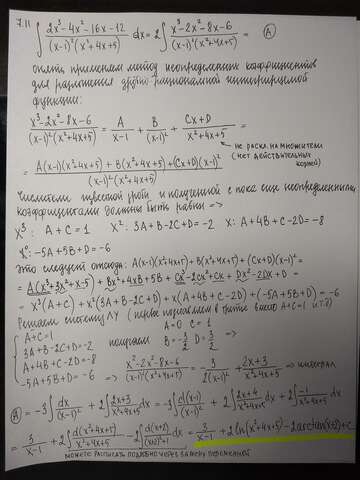 7.11
∫ (2x³-4x²-16x-12)/((x-1)²(x²+4x+5)) dx = 2∫ (x³-2x²-8x-6)/((x-1)²(x²+4x+5)) = Ⓐ
опять применяем метод неопределенных коэффициентов
для разложения дробно рациональной интегрируемой
функции:
(x³-2x²-8x-6)/((x-1)²(x²+4x+5)) = A/(x-1) + B/(x-1)² + (Cx+D)/(x²+4x+5) =
не раскл. на множители
(нет действительных
корней)
= (A(x-1)(x²+4x+5) + B(x²+4x+5) + (Cx+D)(x-1)²)/((x-1)²(x²+4x+5))
Числители исходной дроби и полученной с пока еще неопределенными
коэффициентами должны быть равны =>
x³: A+C=1 x²: 3A+B-2C+D=-2 x: A+4B+C-2D=-8
x⁰: -5A+5B+D=-6
Это следует отсюда: A(x-1)(x²+4x+5)+B(x²+4x+5)+(Cx+D)(x-1)² =
= A(x³+3x²+x-5) + Bx²+4xB+5B + Cx³-2cx²+Cx + Dx²-2Dx+D =
= x³(A+C) + x²(3A+B-2C+D) + x(A+4B+C-2D) + (-5A+5B+D) = -6
Решаем систему ЛУ
A+C=1
3A+B-2C+D=-2
A+4B+C-2D=-8
-5A+5B+D=-6
получаем A=0 C=1
B=-3/2 D=3/2
=> (x³-2x²-8x-6)/((x-1)²(x²+4x+5)) = -3/(2(x-1)²) + (2x+3)/(x²+4x+5) => интеграл
Ⓐ = -3∫ dx/(x-1)² + 2∫ (2x+3)/(x²+4x+5) dx = -3∫ d(x-1)/(x-1)² + 2∫ (2x+4)/(x²+4x+5) dx + 2∫ (-1)/(x²+4x+5) dx
= 3/(x-1) + 2∫ d(x²+4x+5)/(x²+4x+5) - 2∫ d(x+2)/((x+2)²+1) dx = 3/(x-1) + 2ln(x²+4x+5) - 2arctan(x+2)+c
можете расписать подобно через замену переменной